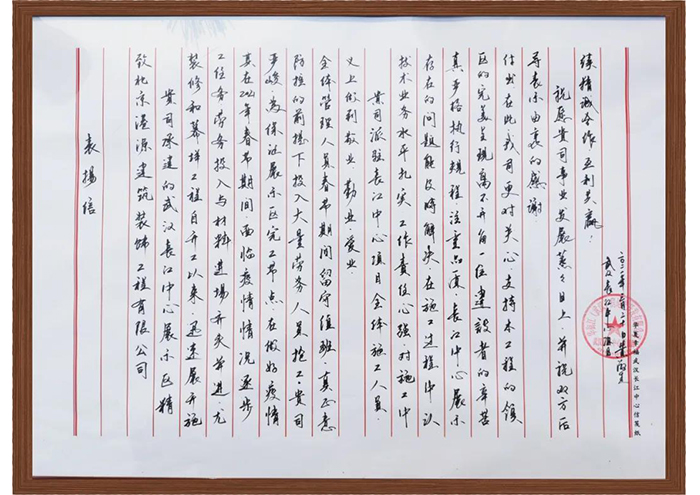 表扬信
致北京港源建筑装饰工程有限公司
贵司承建的武汉长江中心展示区精
装修和幕墙工程自开工以来,迅速展开施
工任务,劳务投入与材料进场齐头并进,尤
其在2021年春节期间,面临疫情情况逐步
严峻,为保证展示区完工节点,在做好疫情
防控的前提下投入大量劳务人员抢工,贵司
全体管理人员春节期间留守值班,真正意
义上做到敬业、勤业、爱业.
贵司派驻长江中心项目全体施工人员,
技术业务水平扎实,工作责任心强,对施工中
存在的问题能及时解决,在施工过程中认
真严格执行规程,长江中心展示
区的完美呈现离不开每一位建设者的辛苦
付出,在此我司更对关心支持本工程的领
导表示由衷的感谢
祝愿贵司事业发展蒸蒸日上,并祝双方后
续精诚合作互利共赢!
武汉长江中心项目
华夏幸福武汉长江中心信笺纸